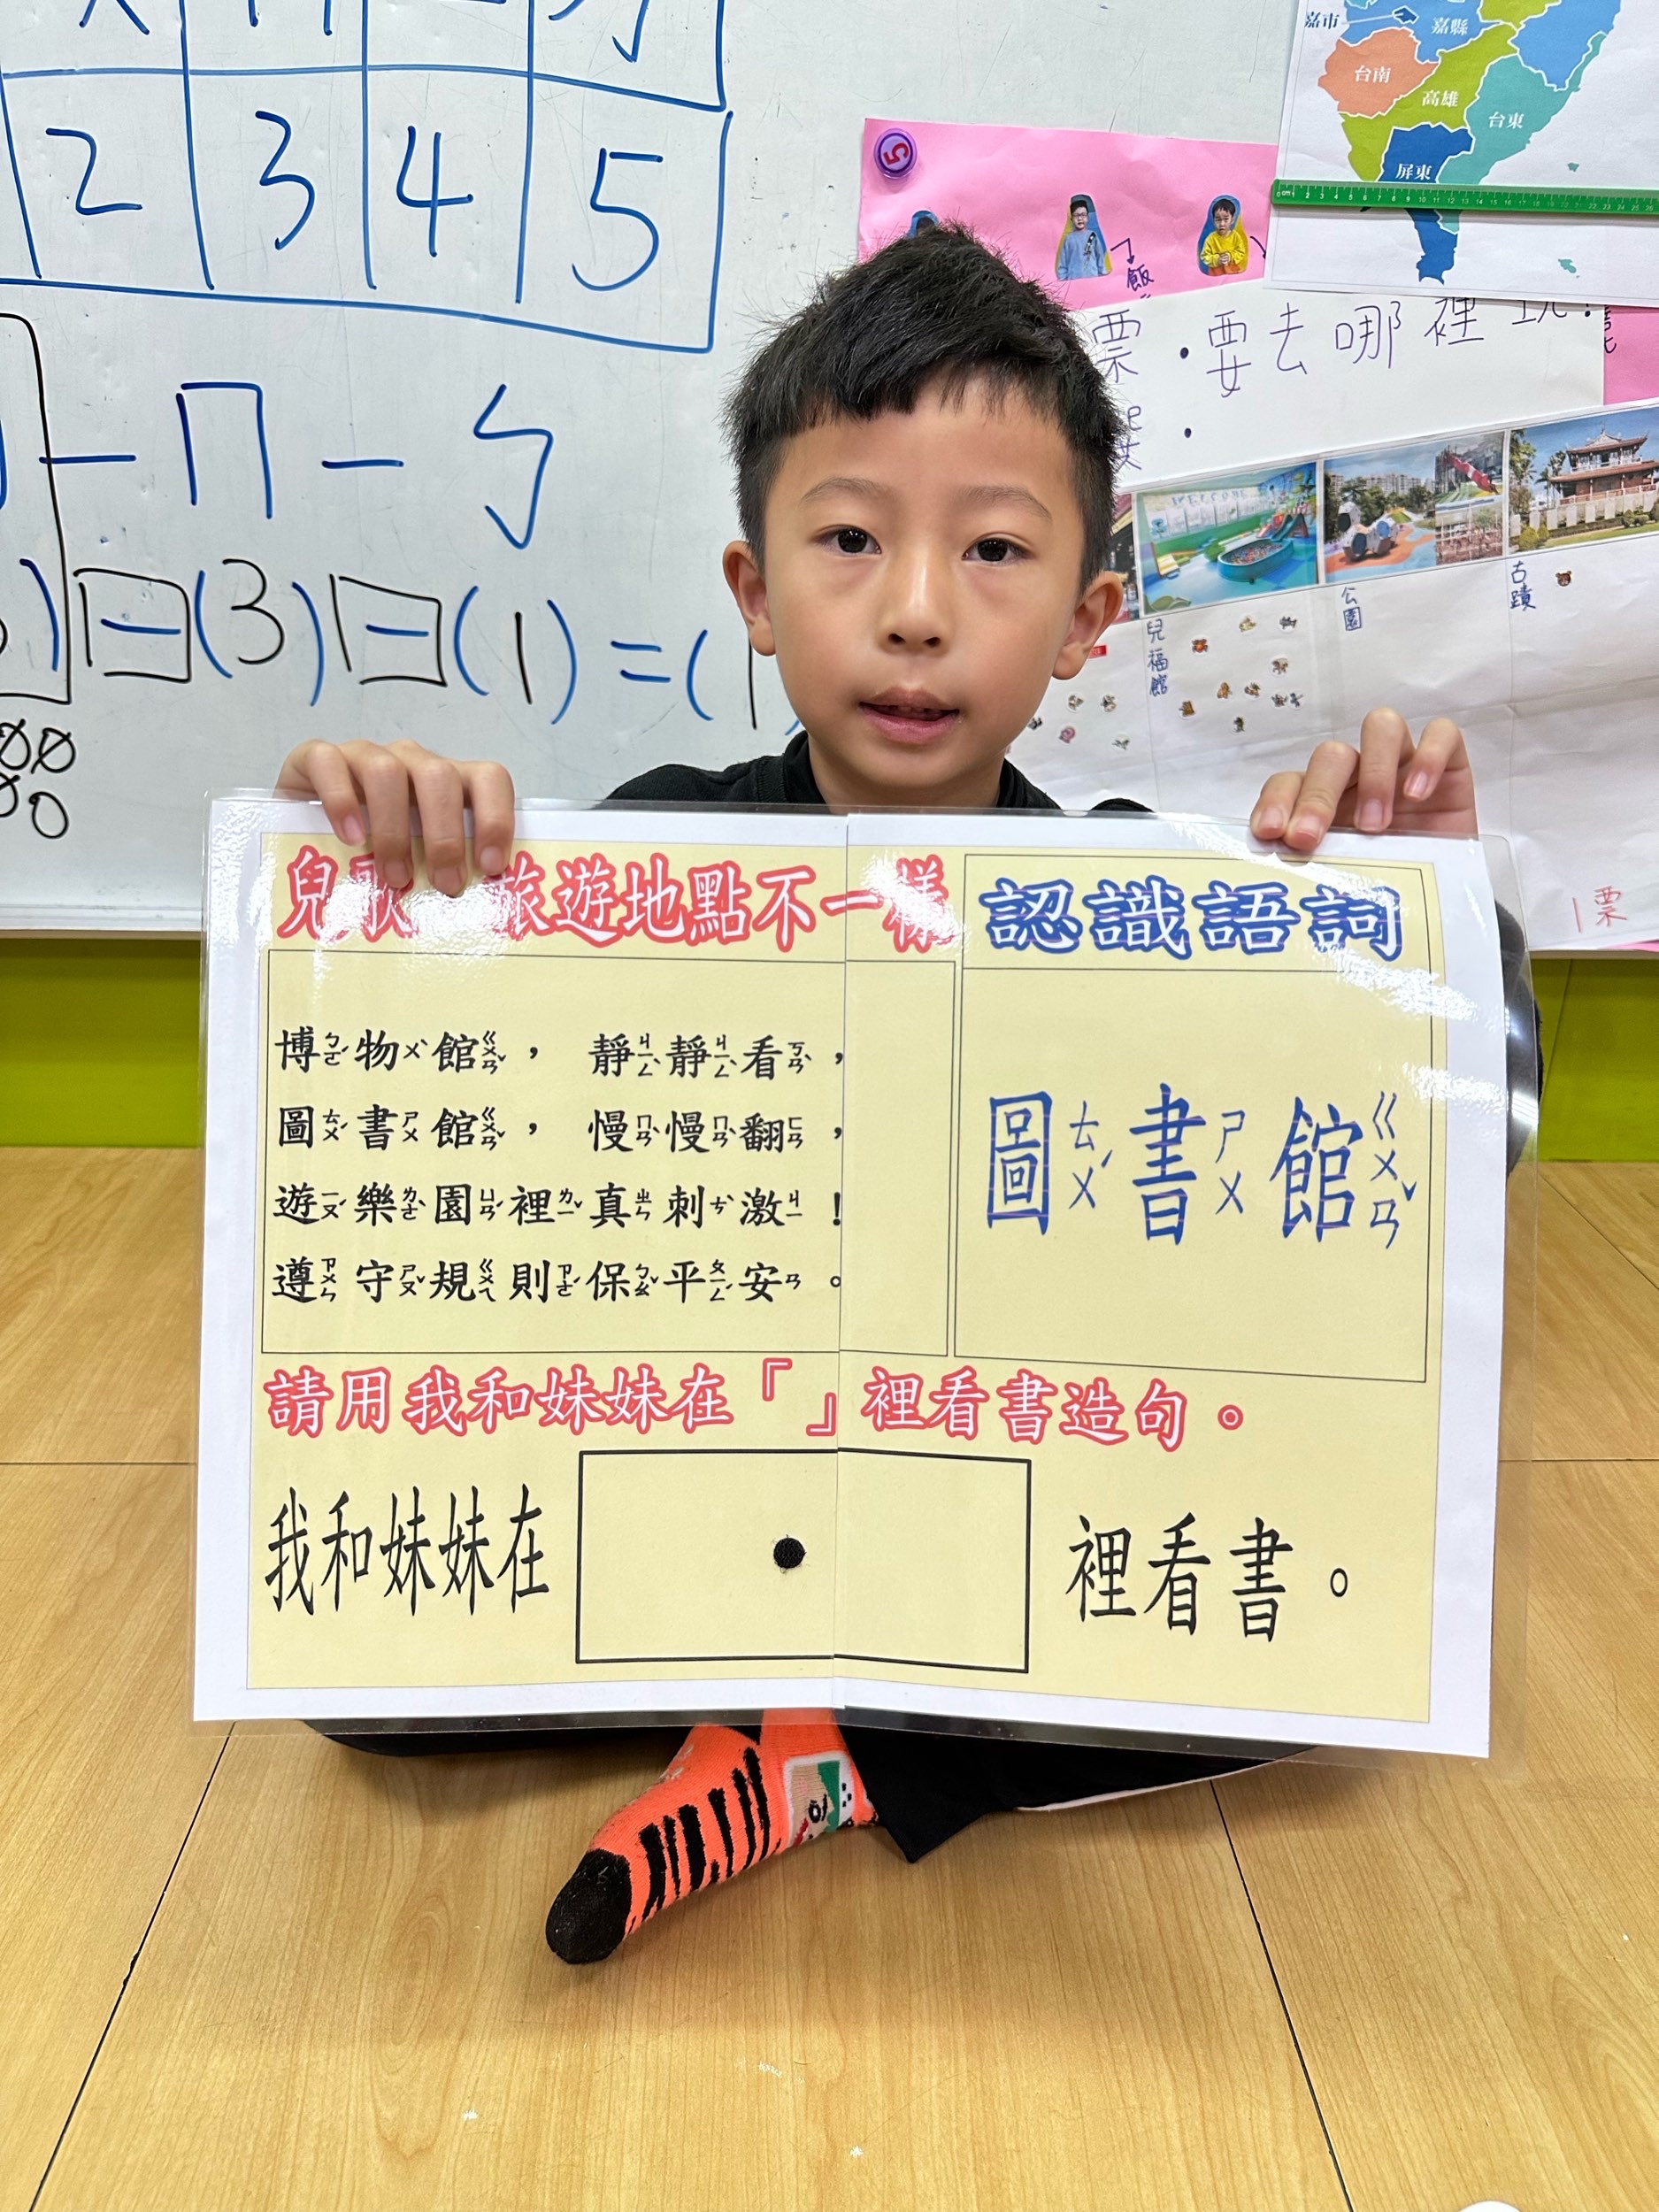 2 3 4 5
嘉市 嘉縣
台南
高雄
台東
屏東
飯
票・要去哪裡玩？
一 ㄇ 一 ㄣ
)－(3)－(1)=(1
兒福館
公園
古蹟
1票
兒歌 旅遊地點不一樣
認識語詞
博ㄅㄛˊ物ㄨˋ館ㄍㄨㄢˇ，靜ㄐㄧㄥˋ靜ㄐㄧㄥˋ看ㄎㄢˋ，
圖ㄊㄨˊ書ㄕㄨ館ㄍㄨㄢˇ，慢ㄇㄢˋ慢ㄇㄢˋ翻ㄈㄢ，
遊ㄧㄡˊ樂ㄌㄜˋ園ㄩㄢˊ裡ㄌㄧˇ真ㄓㄣ刺ㄘˋ激ㄐㄧ！
遵ㄗㄨㄣ守ㄕㄡˇ規ㄍㄨㄟ則ㄗㄜˊ保ㄅㄠˇ平ㄆㄧㄥˊ安ㄢ。
圖ㄊㄨˊ書ㄕㄨ館ㄍㄨㄢˇ
請用我和妹妹在「」裡看書造句。
我和妹妹在 裡看書。